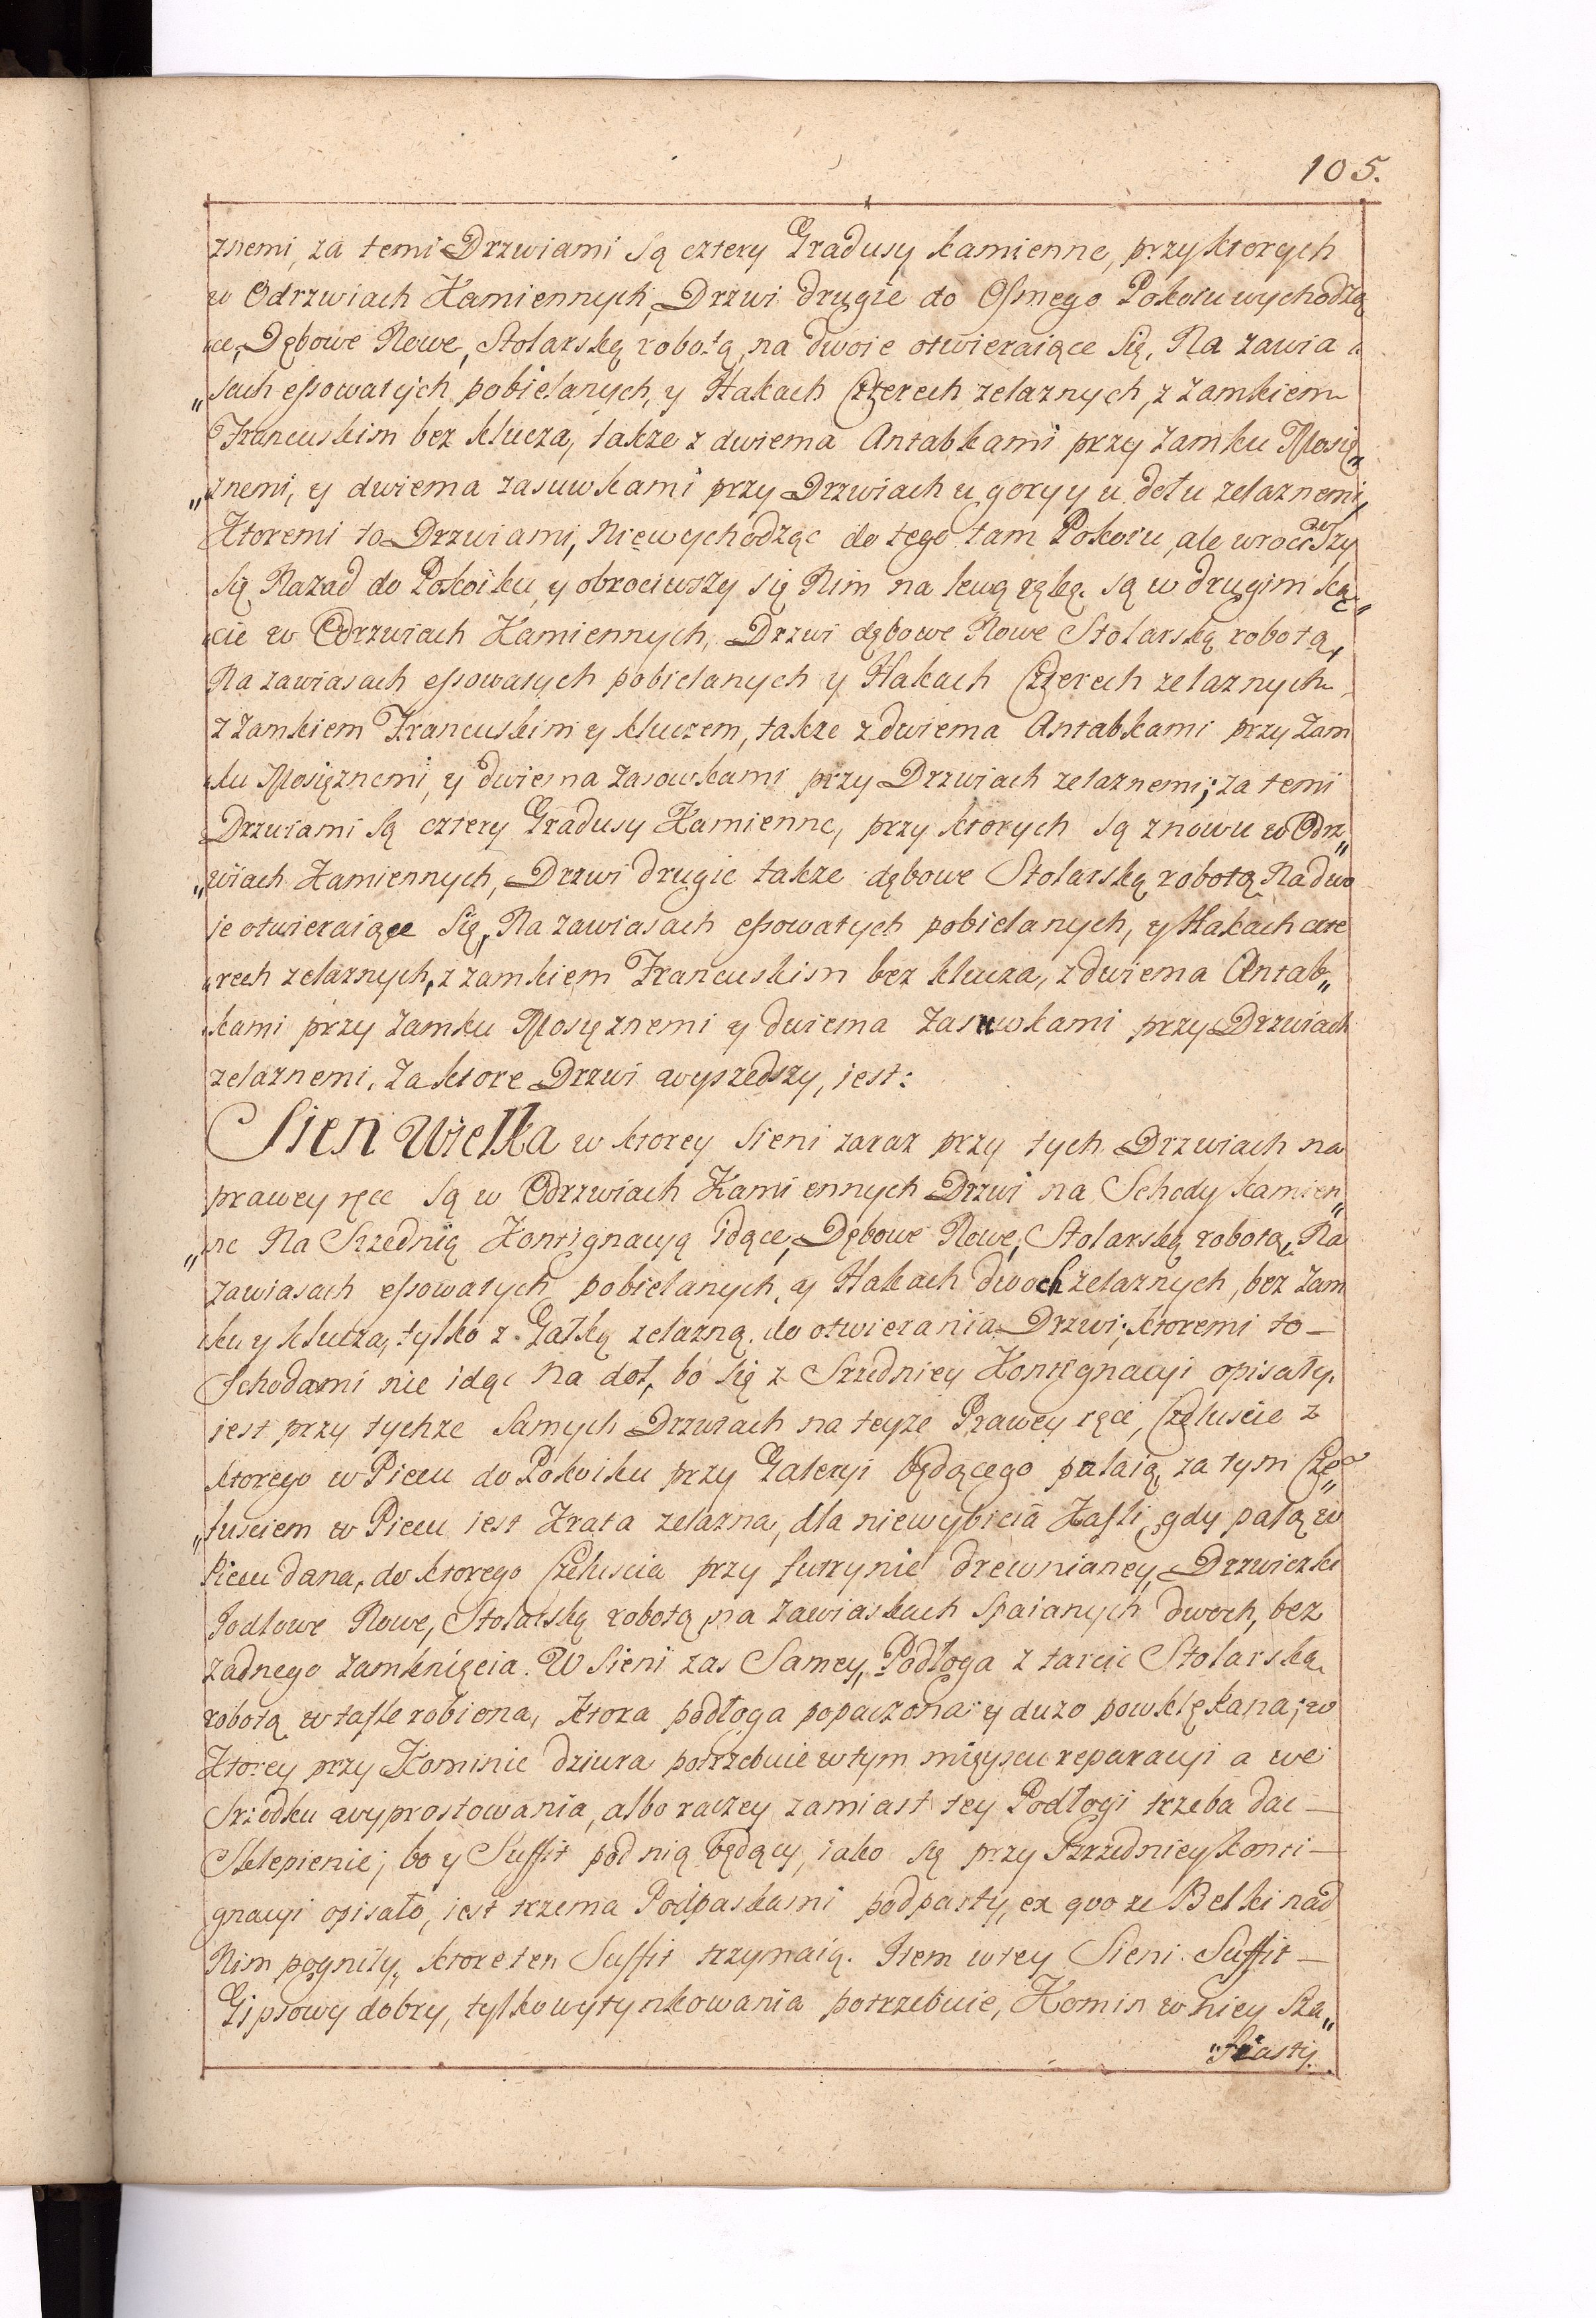 105.
znemi, za temi Drzwiami są cztery Gradusy kamienne, przyktorych
w Odrzwiach Kamiennych, Drzwi drugie do Osmego Pokoiu wychodzą
ce, Dębowe Nowe, Stolarską robotą, na dwoie otwieraiące się, Na zawia„
„sach essowatych pobielanych, y Hakach Czterech zelaznych, z zamkiem
Francuskim bez klucza, także z dwiema Antabkami przy zamku Mosię„
„znemi, y dwiema zasuwkami przy Drzwiach u gory y u dołu zelaznemi,
Ktoremi to Drzwiami, Niewychodząc do tego tam Pokoiu, ale wrociwszy
się Nazad do Pokoiku, y obrociwszy się Nim na lewą rękę, są w drugim ką„
„cie w Odrzwiach Kamiennych, Drzwi dębowe Nowe Stolarską robotą,
Na zawiasach essowatych pobielanych y Hakach Czterech zelaznych
z zamkiem Francuskim y kluczem, także z dwiema Antabkami przy Zam
„ku Mosięznemi, y dwiema Zasowkami przy Drzwiach zelaznemi; za temi
Drzwiami są cztery Gradusy Kamienne, przy ktorych są znowu w Odrz„
„wiach Kamiennych, Drzwi drugie także dębowe Stolarską robotą Nadwo
ie otwieraiące się, Na zawiasach essowatych pobielanych, y Hakach czte
„rech zelaznych, z zamkiem Francuskim bez klucza, z dwiema Antab„
„kami przy Zamku Mosięznemi y dwiema Zasuwkami przy Drzwiach
zelaznemi. Za ktore Drzwi wyszedszy, iest:
Sien Wielka w ktorey Sieni zaraz przy tych Drzwiach na
prawey ręce są w Odrzwiach Kamiennych Drzwi na Schody kamien„
„ne Na Srzednią Kontignacyą idące, Dębowe Nowe, Stolarską robotą, Na
zawiasach essowatych pobielanych, y Hakach dwoch zelaznych, bez Zam
„ku y klucza, tylko z Gałką zelazną do otwierania Drzwi; ktoremi to
Schodami nie idąc Na doł, bo się z Srzedniey Kontignacyi opisały.
iest przy tychże Samych Drzwiach na teyże Prawey ręce, Czeluscie z
ktorego w Piecu do Pokoiku przy Galeryi będącego palaią, za tym Cze„
„lusciem w Piecu iest Krata zelazna, dla niewybicia Kafli, gdy palą w
Piecu dana, do ktorego Czeluscia przy futrynie drewnianey, Drzwiczki
Jodłowe Nowe, Stolarską robotą na Zawiaskach Spaianych dwoch, bez
zadnego zamknięcia. W Sieni zas Samey, Podłoga z tarcic Stolarską
robotą w tafle robiona, ktora podłoga popaczona y duzo powklękana; w
Ktorey przy Kominie dziura potrzebuie w tym mieyscu reparacyi a we
Srzedku wyprostowania, albo raczey zamiast tey Podłogi trzeba dac
Sklepienie; bo y Suffit pod nią będący, iako się przy Szrzedniey Konti
gnacyi opisało, iest trzema Podpaskami podparty, ex quo ze Belki nad
Nim pogniły, ktore ten Suffit trzymaią. Item w tey Sieni Suffit
Gipsowy dobry, tylko wytynkowania potrzebuie, Komin w niey Sza„
„fiasty.